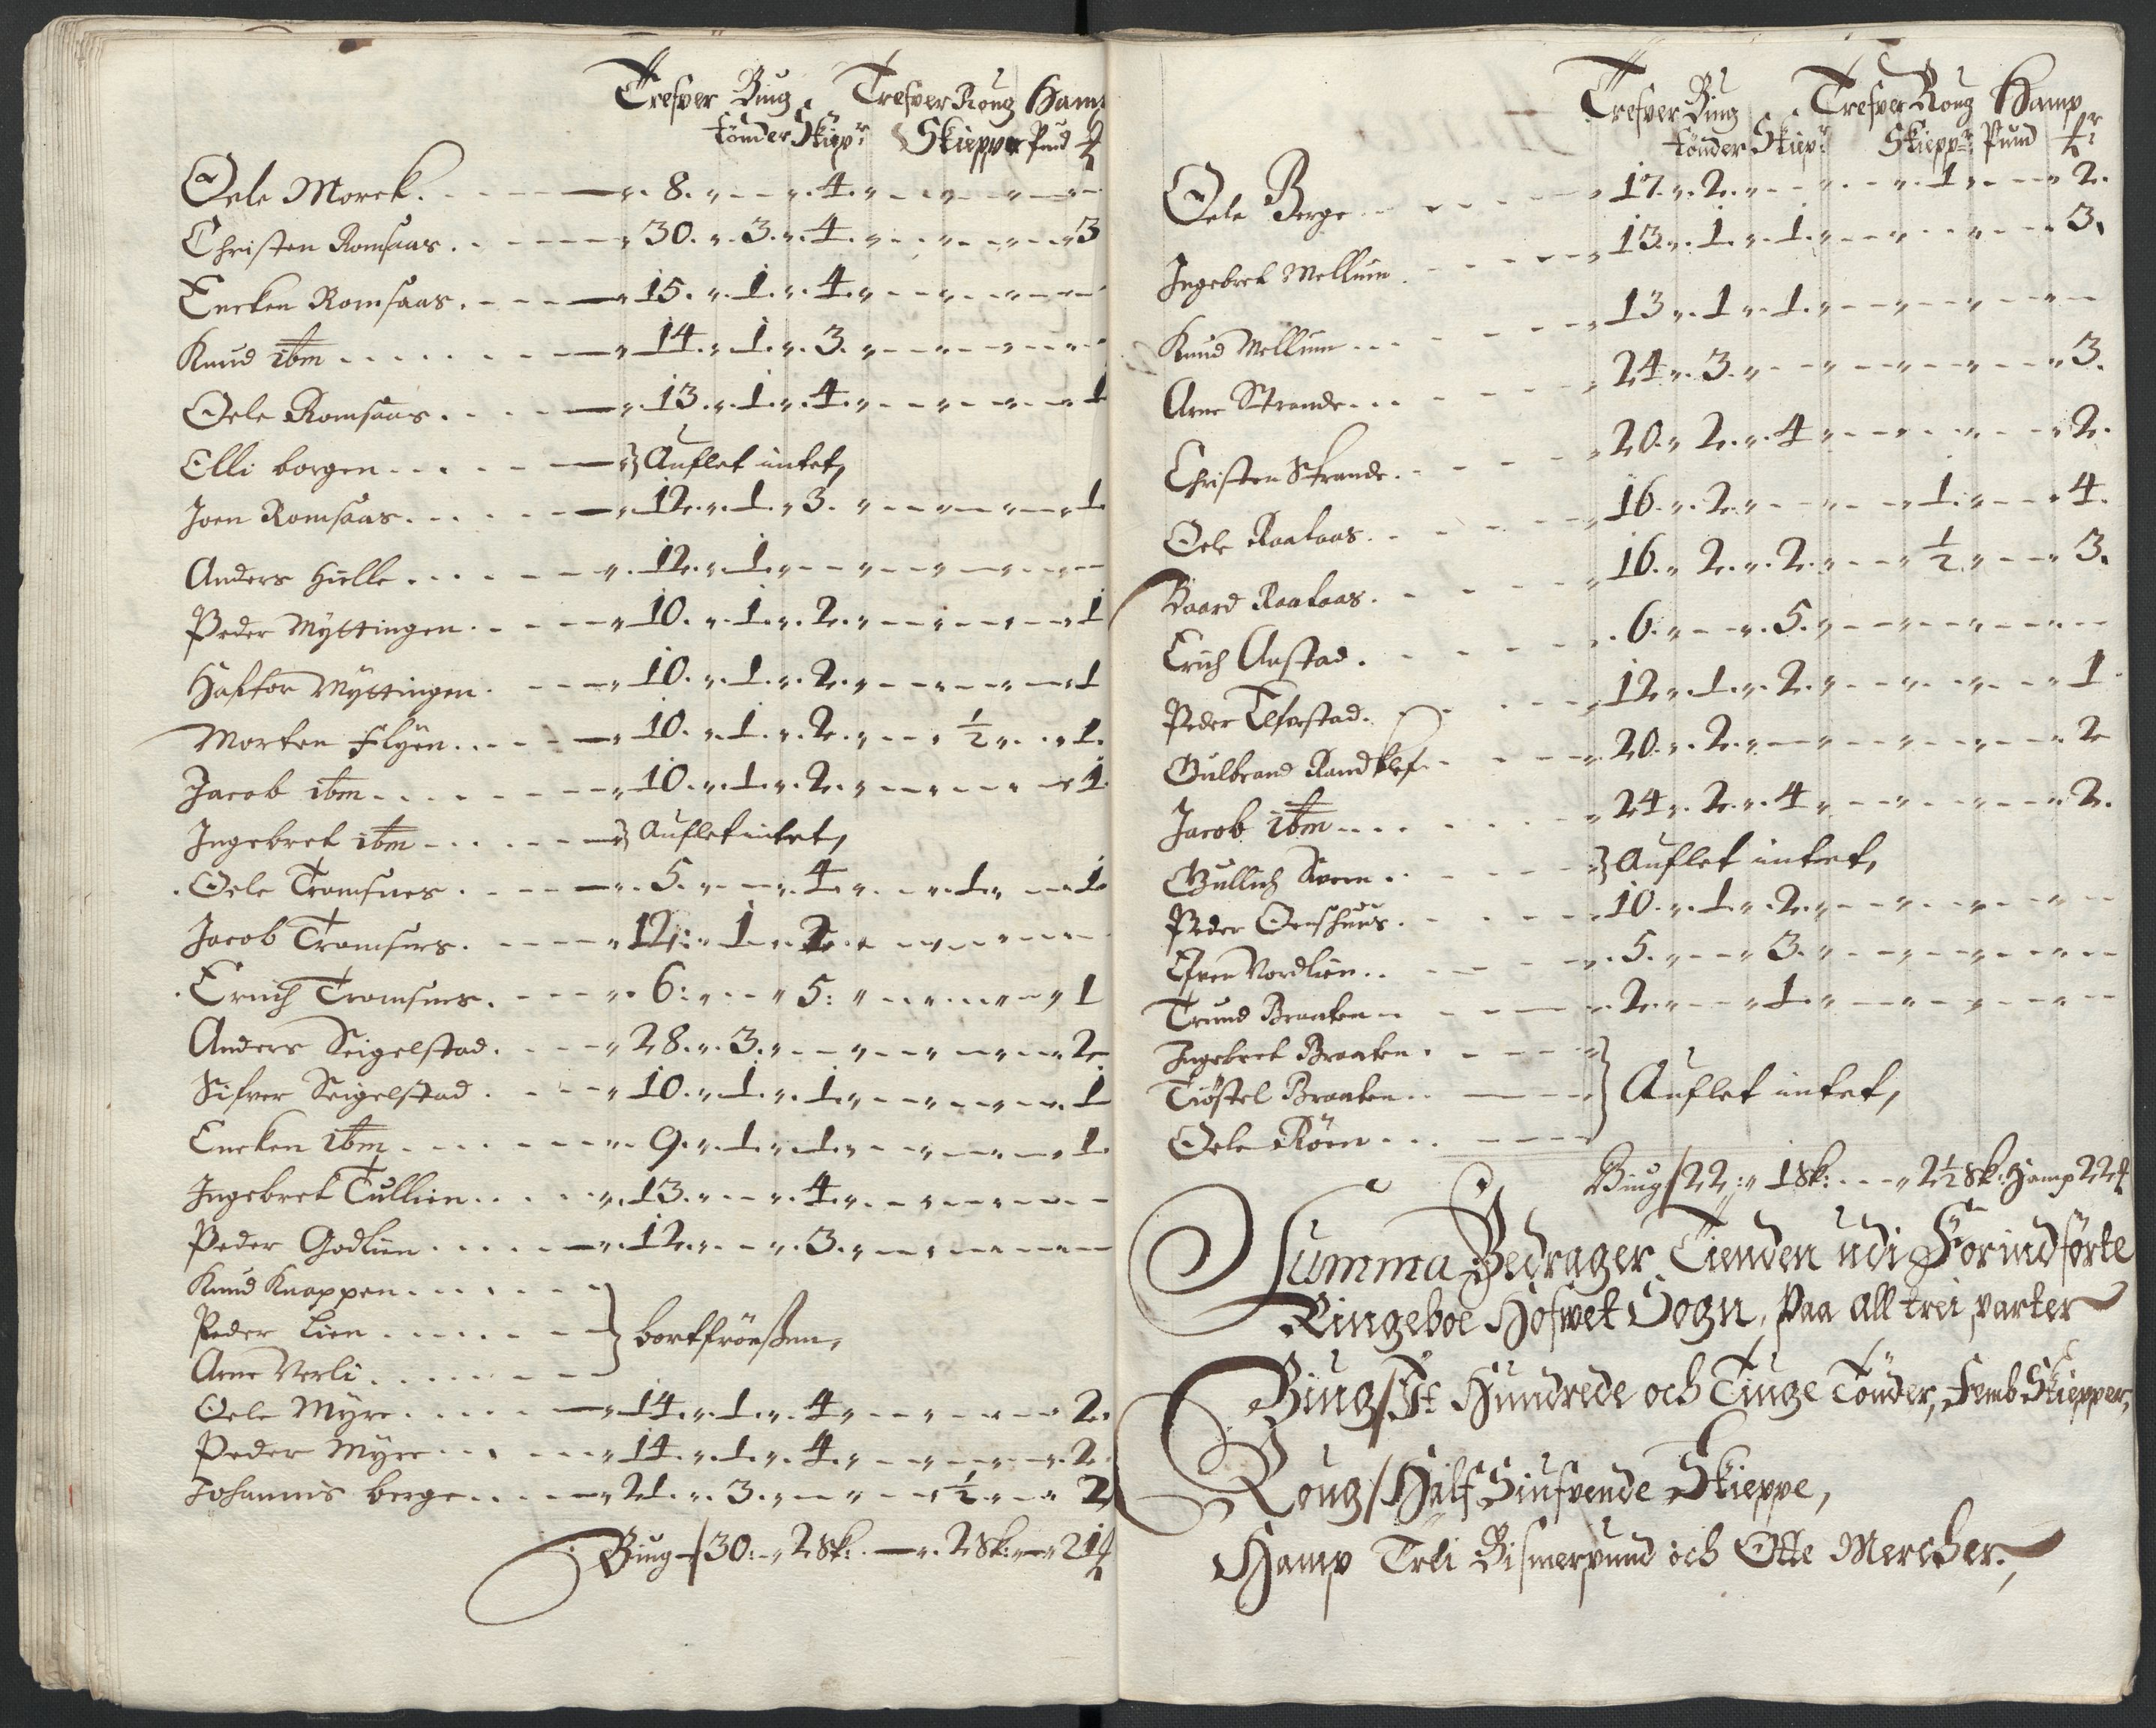 Trefver Biug Trefver Roug Hamp
tönder Skiepr Skiepper Pund ℔
Oele Morck . . . 8. 4.
Christen Romsaas . . . 30. 3. 4. 3
Encken Romsaas . . . 15. 1. 4.
Knud ibm . . . 14. 1. 3.
Oele Romsaas . . . 13. 1. 4. 1
Elli borgen . . . Auflet intet,
Joen Romsaas . . . 12. 1. 3. 1
Anders Hielle . . . 12. 1.
Peder Myttingen . . . 10. 1. 2. 1
Haftor Myttingen . . . 10. 1. 2. 1
Morten Flyen . . . 10. 1. 2. ½ 1.
Jacob ibm . . . 10. 1. 2. 1
Ingebret ibm . . . Auflet intet,
Oele Tromsnes . . . 5. 4. 1. 1
Jacob Tromsnes . . . 12: 1. 2.
Erich Tromsnes . . . 6: 5: 1
Anders Seigelstad . . . 28. 3. 2
Sifver Seigelstad . . . 10. 1. 1. 1
Encken ibm . . . 9. 1. 1. 1.
Ingebret Tullien . . . 13. 4.
Peder Godlien . . . 12. 3.
Knud Knappen . . .
Peder Lien . . . bortfrösen,
Arne Verli . . .
Oele Myre . . . 14. 1. 4. 2.
Peder Myre . . . 14. 1. 4. 2.
Johannis berge . . . 21. 3. ½ 2
Biug / 30: 2 Sk: 2 Sk: 21 ℔
Trefver Biug Trefver Roug Hamp
tönder Skiepr Skieppr Pund ℔r
Oele Berge . . . 17. 2. 1. 2.
Ingebret Mellum . . . 13. 1. 1. 3.
Knud Mellum . . . 13 1 1.
Arne Strande . . . 24. 3. 3.
Christen Strande . . . 20. 2. 4 2.
Oele Raaaas . . . 16. 2. 1. 4.
Baard Raaaas . . . 16. 2. 2. ½ 3.
Erich Aastad . . . 6. 5.
Peder Elfvestad . . . 12. 1. 2. 1
Gulbrand Randklef . . . 20. 2. 2
Jacob ibm . . . 24. 2. 4 2.
Gullich . . . Auflet intet,
Peder . . . 10. 1. 2.
Efven Nordlien . . . 5. 3.
Trund Braaten . . . 2. 1.
Ingebret Braaten . . .
Tiöstel Braaten . . . Auflet intet,
Oele Röen . . .
Biug / 22: 1 Sk: 2½ Sk: Hamp 22 ℔
Summa Bedrager Tienden udi Forindförte
Ringeboe Hofvet Sogn, Paa all trei parter
Biug / It Hundrede och Tiuge Tönder, Femb Skiepper,
Roug / Half Siufvende Skieppe,
Hamp Trei Bismerpund och Otte Mercher.